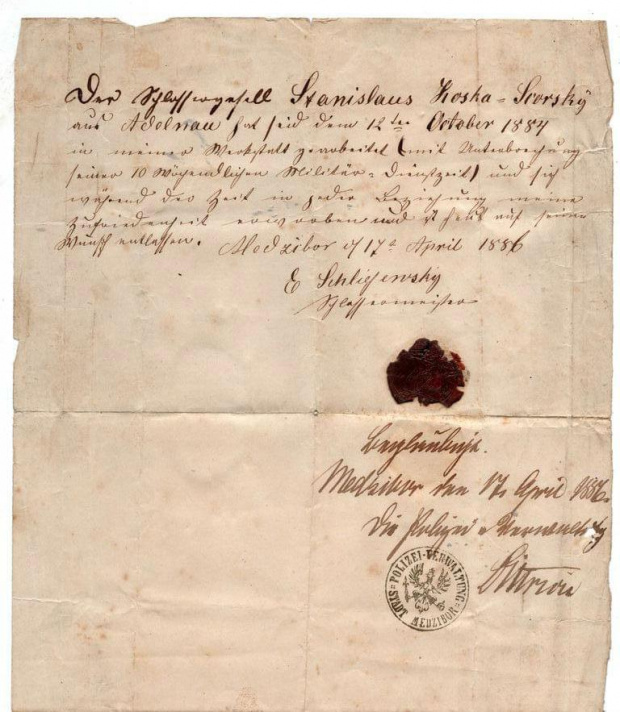 Der Schlossergesell Stanislaus Koska = Scorsky
aus Adelnau hat seid dem 12ten October 1884
in meiner Werkstatt gearbeitet (mit Unterbrechung
seiner 10 Wöchendlichen Militär = Dienstzeit) und sich
während der Zeit in jeder Beziehung meine
Zufriedenheit erworben und ist heut auf seine
Wunsch entlassen. Medzibor d 17t April 1886
E
Schlossermeister
Beglaubigt.
Medzibor den 17. April 1886.
Die Polizei = Verwaltung
STADT POLIZEI-VERWALTUNG
MEDZIBOR